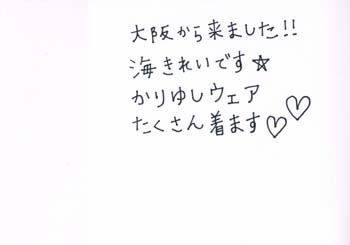 大阪から来ました!!
海きれいです☆
かりゆしウェア
たくさん着ます♡♡